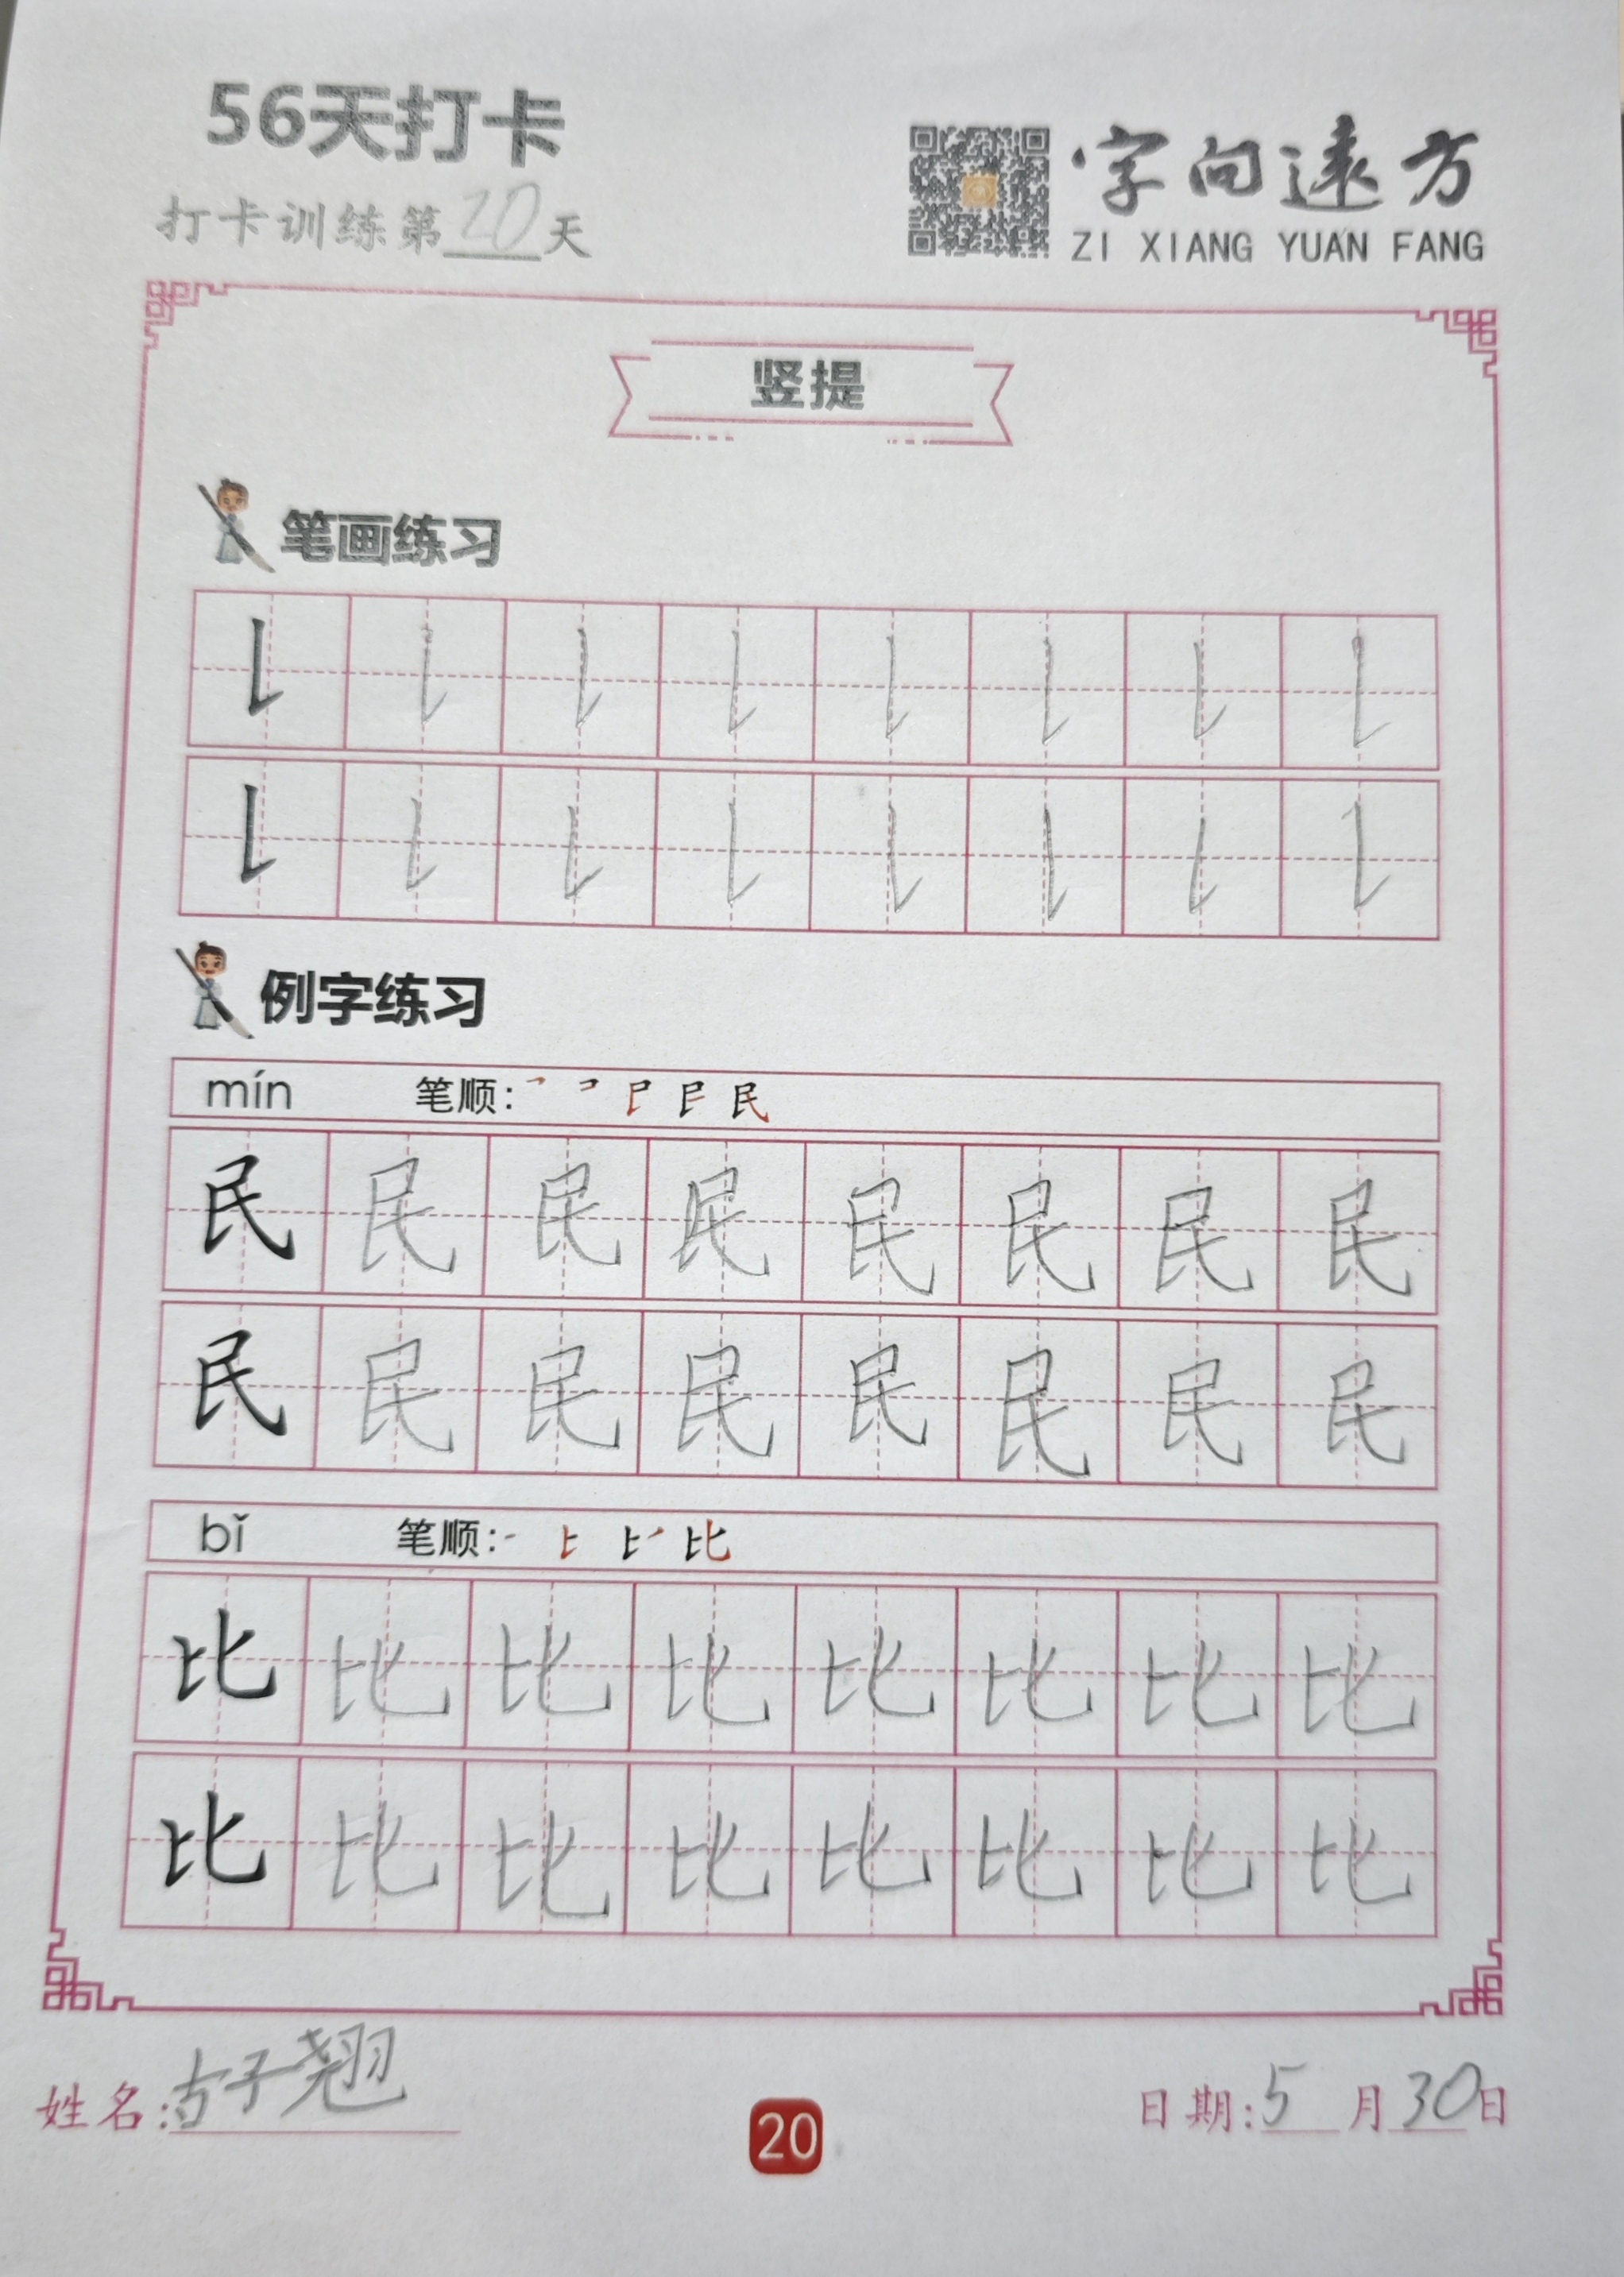 56天打卡
打卡训练第20天
字向远方
ZI XIANG YUAN FANG
竖提
笔画练习
例字练习
mín 笔顺: 民
民 民 民 民 民 民 民 民
民 民 民 民 民 民 民 民
bǐ 笔顺: 比
比 比 比 比 比 比 比 比
比 比 比 比 比 比 比 比
姓名:古子翘
20
日期:5月30日